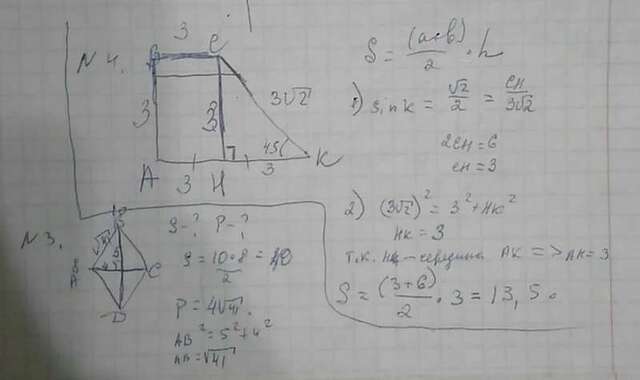 N 4.
3
B C
3
3
3√2
45
A 3 H 3 K
S = (a+b)/2 · h
1) sin K = √2/2 = CH/3√2
2CH = 6
CH = 3
2) (3√2)² = 3² + HK²
HK = 3
т.к. H – середина AK => AH = 3
S = (3+6)/2 · 3 = 13,5.
N 3.
√41
5
4
C
A
D
S - ? P - ?
S = 10·8/2 = 40
P = 4√41
AB² = 5² + 4²
AB = √41